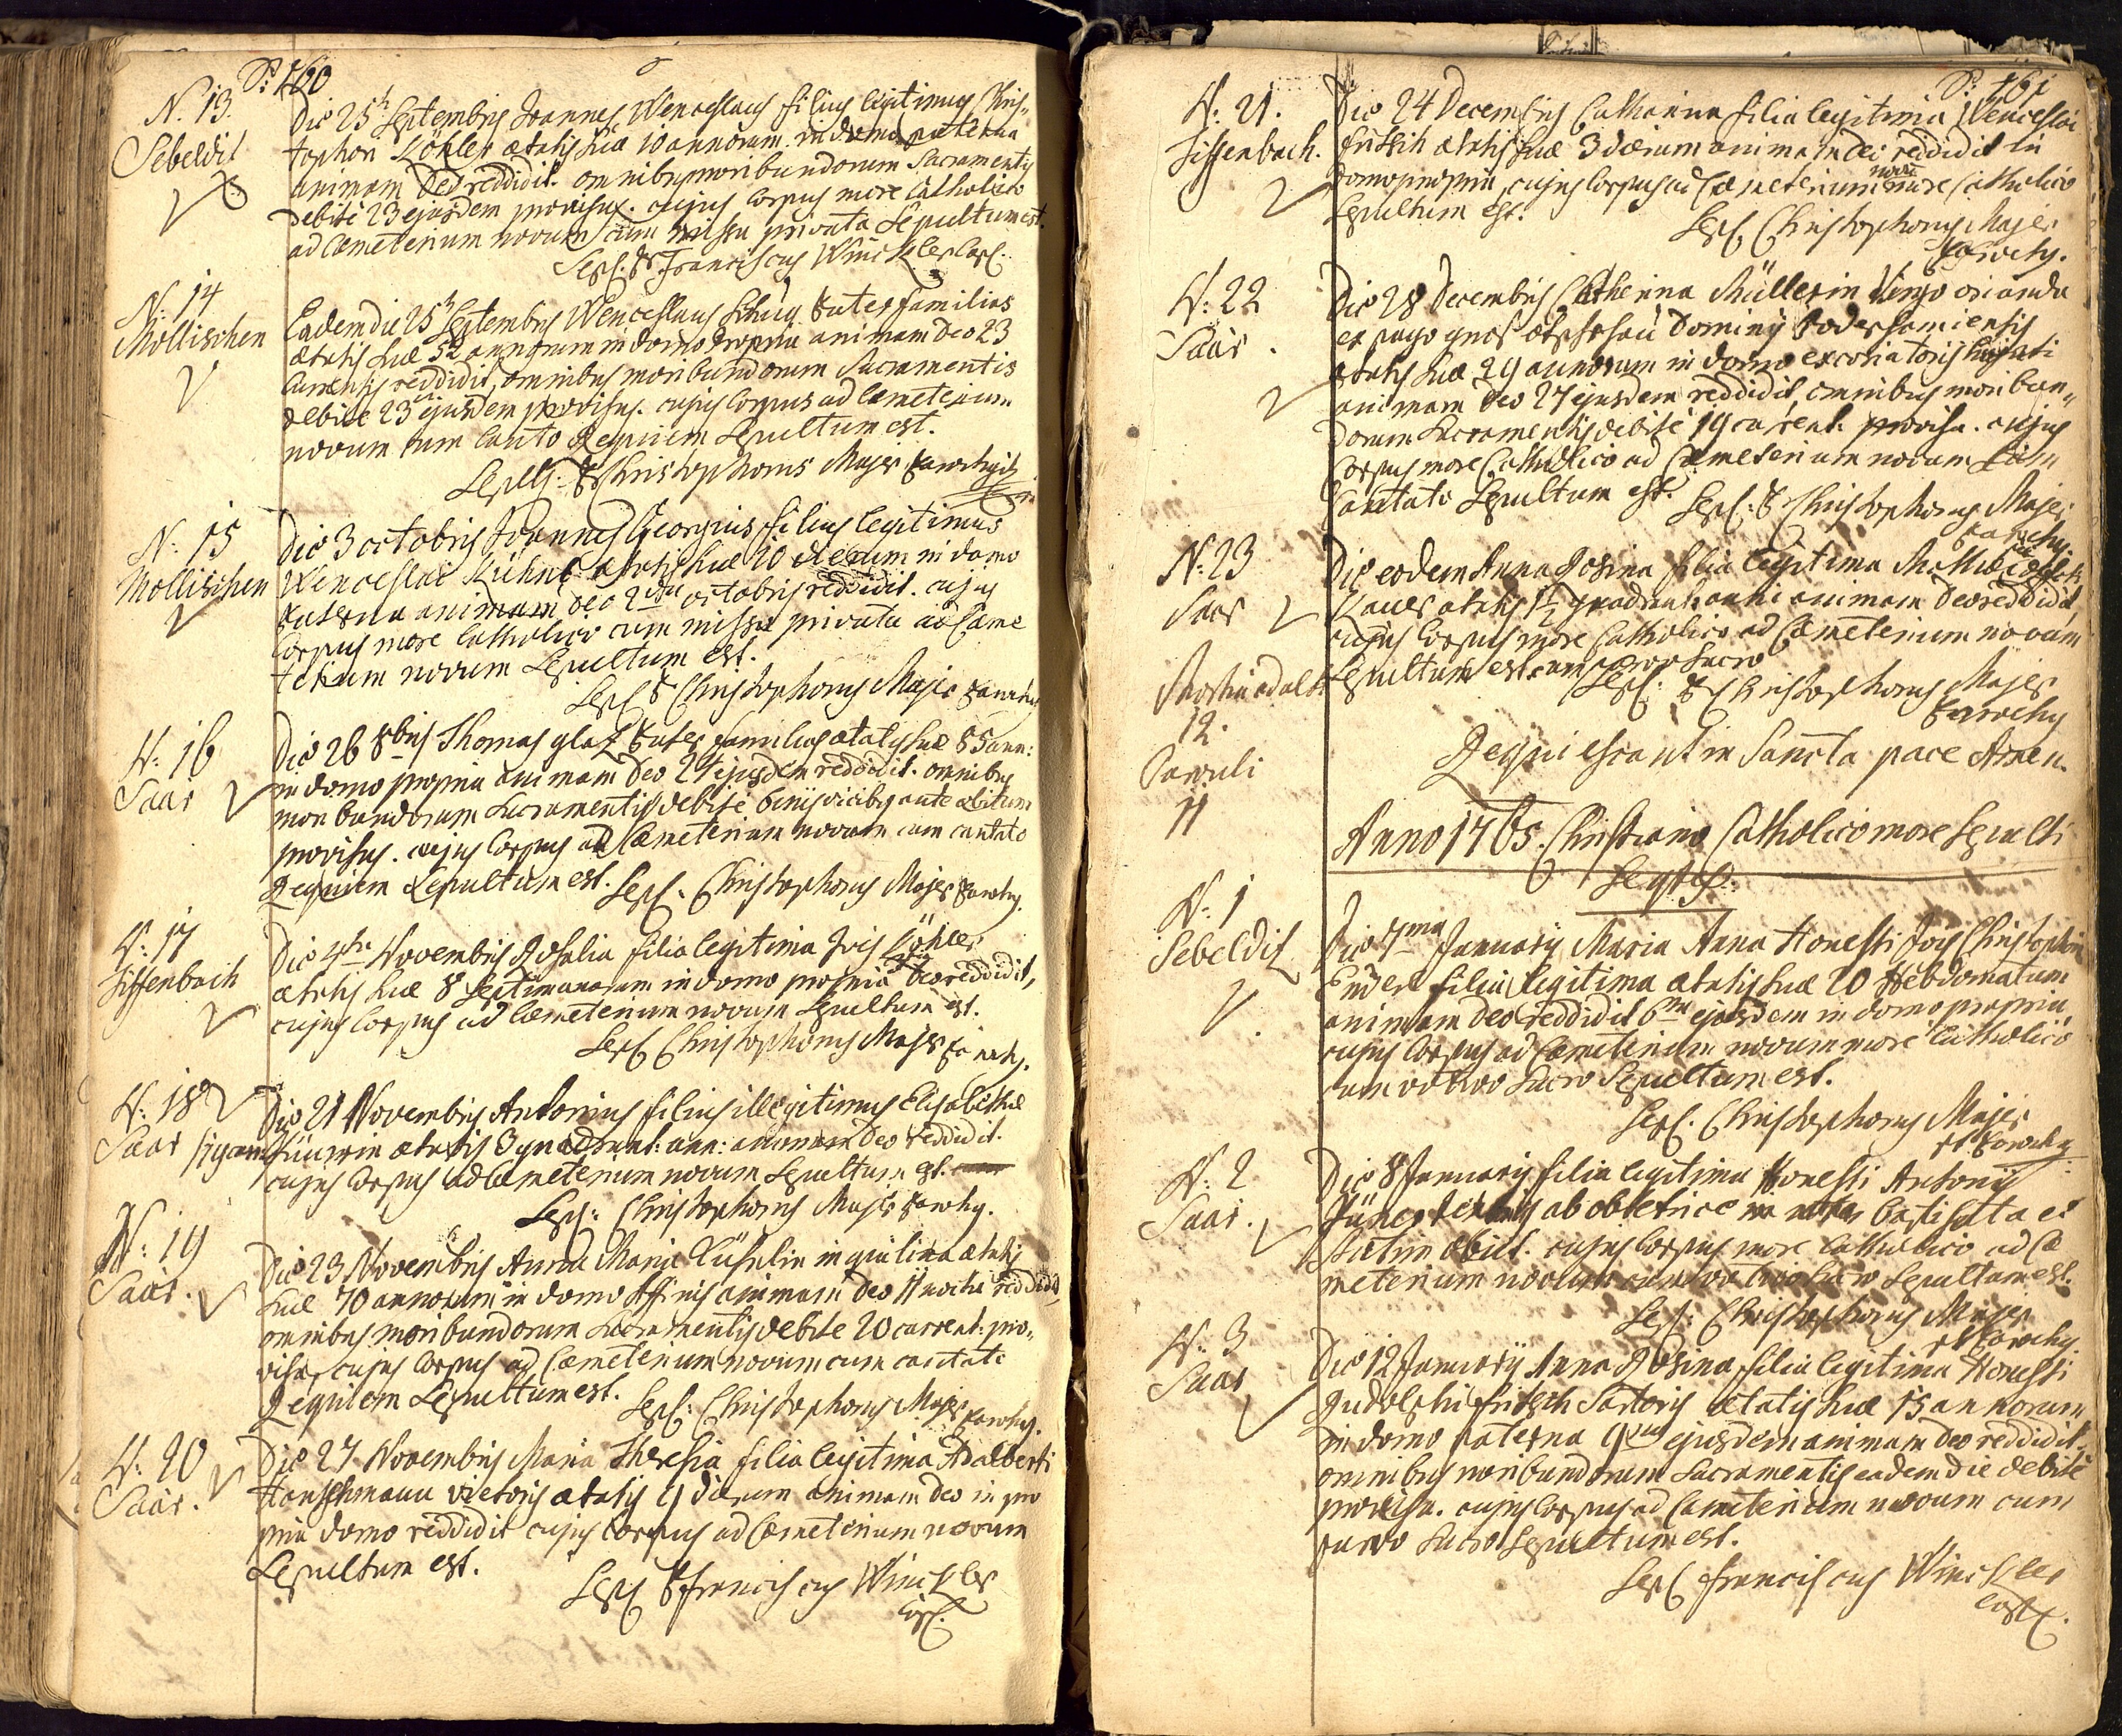 P: 160
N. 13.
Sebeldit
Die 25 Septembris Joannes Wenceslaus filius legitimus Chris„
tophori Köhler ætatis suæ 10 annorum in domo paterna
animam Deo reddidit. omnibus moribundorum Sacramentis
debite 23 ejusdem provisus. cujus Corpus more Catholico
ad Cœmeterium novum cum missa privata Sepultum est.
Sepl. P Franciscus Winckler Capl.
N: 14
Mollischen
Eadem die 25 Septembris Wenceslaus Pater familias
ætatis suæ 52 annorum in domo propria animam Deo 23
currentis reddidit, omnibus moribundorum Sacramentis
debite 23 ejusdem provisus. cujus Corpus ad Cœmeterium
novum cum Canto Requiem Sepultum est.
Sepl: P Christophorus Majer Parochus
N: 15
Mollischen
Die 3 octobris Joannes Georgius filius legitimus
Wenceslai Kühnel ætatis suæ 20 dierum in domo
Paterna animam Deo 2da octobris reddidit. cujus
Corpus more Catholico cum missa privata ad Cæme
terium novum Sepultum est.
Sepl P Christophorus Majer Parochus
N: 16
Saar
Die 26 8bris Thomas glaz Pater familias ætatis suæ 85 ann:
in domo propria animam Deo 24 ejusdem reddidit. omnibus
moribundorum Sacramentis debite vicibus ante obitum
provisus. cujus Corpus ad Cæmeterium novum cum cantato
Requiem Sepultum est. Sepl. Christophorus Majer Parochus.
N: 17
Giffenbach
Die 4ta Novembris Rosalia filia legitima Köhler
ætatis suæ 8 Septimanarum in domo propria Deo reddidit,
cujus Corpus ad Cœmeterium novum Sepultum est.
Sepl Christophorus Majer Parochus.
N: 18
Saar
Die 21 Novembris Antonius filius illegitimus Elisabethæ
ætatis 3 quadrant: ann: animam Deo reddidit.
cujus Corpus ad Cœmeterium novum Sepultum est.
Sepl: Christophorus Majer Parochus.
N: 19
Saar.
Die 23 Novembris Anna Maria inquilina ætatis
suæ 70 annorum in domo affinis animam Deo reddidit,
omnibus moribundorum Sacramentis debite 20 current: pro„
visa, cujus Corpus ad Cœmeterium novum cum cantato
Requiem Sepultum est. Sepl: Christophorus Majer Parochus.
N: 20
Saar.
Die 27 Novembris Maria Theresia filia legitima Adalberti
Hanschmann vietoris ætatis 9 dierum animam Deo in pro
pria domo reddidit cujus Corpus ad Cœmeterium novum
Sepultum est.
Sepl P Franciscus Winckler
Capl.
P: 161
N: 21.
Giffenbach.
Die 24 Decembris Catharina filia legitima Wenceslai
Fritsch ætatis suæ 3 dierum animam Deo reddidit in
domo propria, cujus Corpus ad Cœmeterium novum more Catholico
Sepultum est.
Sepl Christophorus Majer
Parochus.
N: 22
Saar.
Die 28 Decembris Catherina Müllerin Virgo orianda
ex pago Dominij
ætatis suæ 29 annorum in domo excoriatoris
animam Deo 27 ejusdem reddidit, omnibus moribun„
dorum Sacramentis debite 19 current. provisa. cujus
Corpus more Catholico ad Cœmeterium novum cum
Cantato Sepultum est. Sepl: P Christophorus Majer
Parochus
N: 23
Saar
Die eodem Anna Rosina filia legitima
Bauer ætatis 1½ quadrant: anni animam Deo reddidit
cujus Corpus more Catholico ad Cœmeterium novum
Sepultum est cum parvo Sacro
Sepl: P Christophorus Majer
Parochus
12.
Parvuli
11
Requiescant in Sancta pace Amen.
Anno 1765. Christiano Catholico more Sepulti
Seqt:
N: 1
Sebeldit
Die 7ma Januarij Maria Anna Honesti Christophori
Ender filia legitima ætatis suæ 20 Hebdomatum
animam Deo reddidit 6ta ejusdem in domo propria
cujus Corpus ad Cœmeterium novum more Catholico
cum votivo Sacro Sepultum est.
Sepl. Christophorus Majer
Parochus
N: 2
Saar.
Die 8 Januarij filia legitima Honesti Antonij
ab obstetrice baptisata et
statim obiit. cujus Corpus more Catholico ad Cœ
meterium novum cum votivo Sacro Sepultum est.
Sepl: Christophorus Majer
Parochus.
N: 3
Saar
Die 12 Januarij Anna Rosina, filia legitima Honesti
Rudolphi Fritsch Sartoris ætatis suæ 15 annorum
in domo paterna ejusdem animam Deo reddidit.
omnibus moribundorum Sacramentis eadem die debite
provisa. cujus Corpus ad Cœmeterium novum cum
parvo Sacro Sepultum est.
Sepl Franciscus Winckler
Capl.